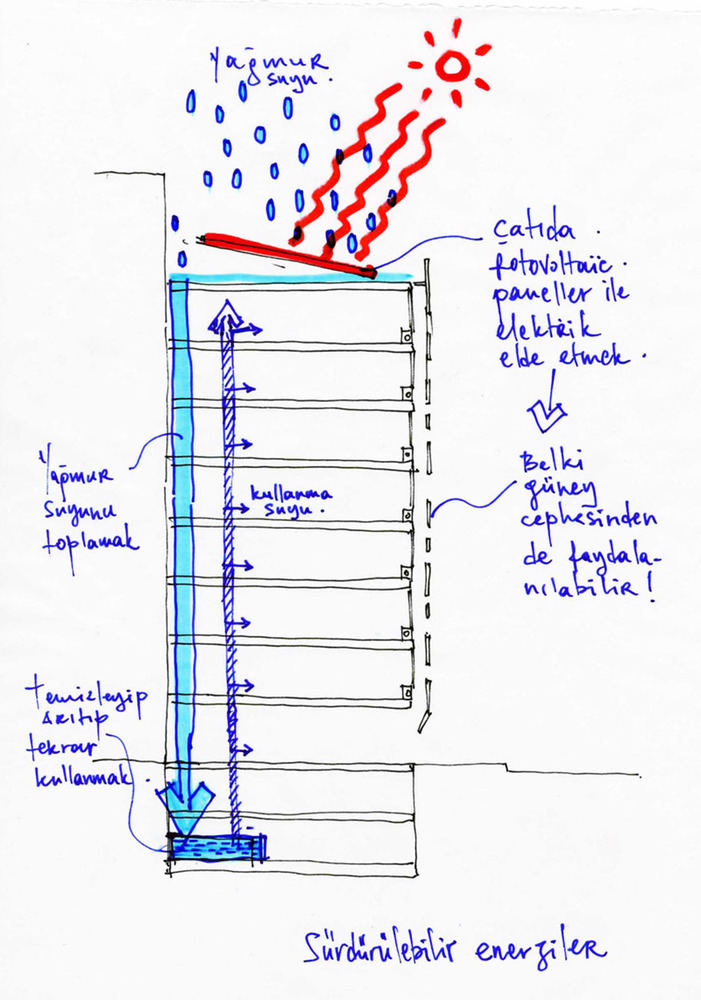 Yağmur
suyu.
Çatıda.
fotovoltaic.
paneller ile
elektrik
elde etmek.
Belki
güney
cephesinden
de faydala-
nılabilir!
Yağmur
suyunu
toplamak
kullanma
suyu.
temizleyip
arıtıp
tekrar
kullanmak.
Sürdürülebilir energiler